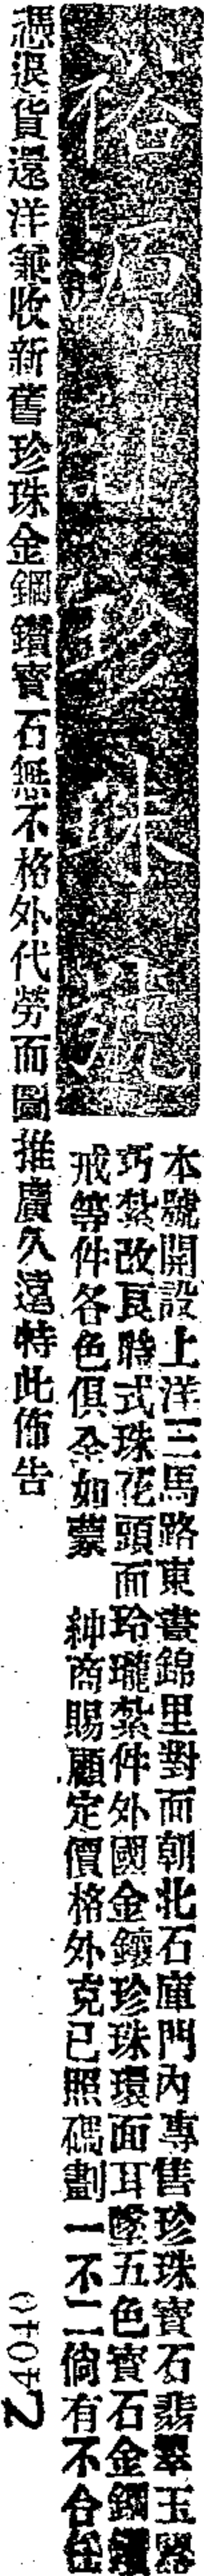 裕原進珍珠號
本號開設上洋三馬路東晝錦里對面朝北石庫門內專售珍珠寶石翡翠玉器
巧紮改良時式珠花頭面玲瓏紮件外國金鑲珍珠環面耳墜五色寶石金鋼鑽
戒等件各色俱全如蒙 紳商賜顧定價格外克己照碼劃一不二倘有不合任
憑退貨還洋兼收新舊珍珠金鋼鑽寶石無不格外代勞而圖推廣久遠特此佈告